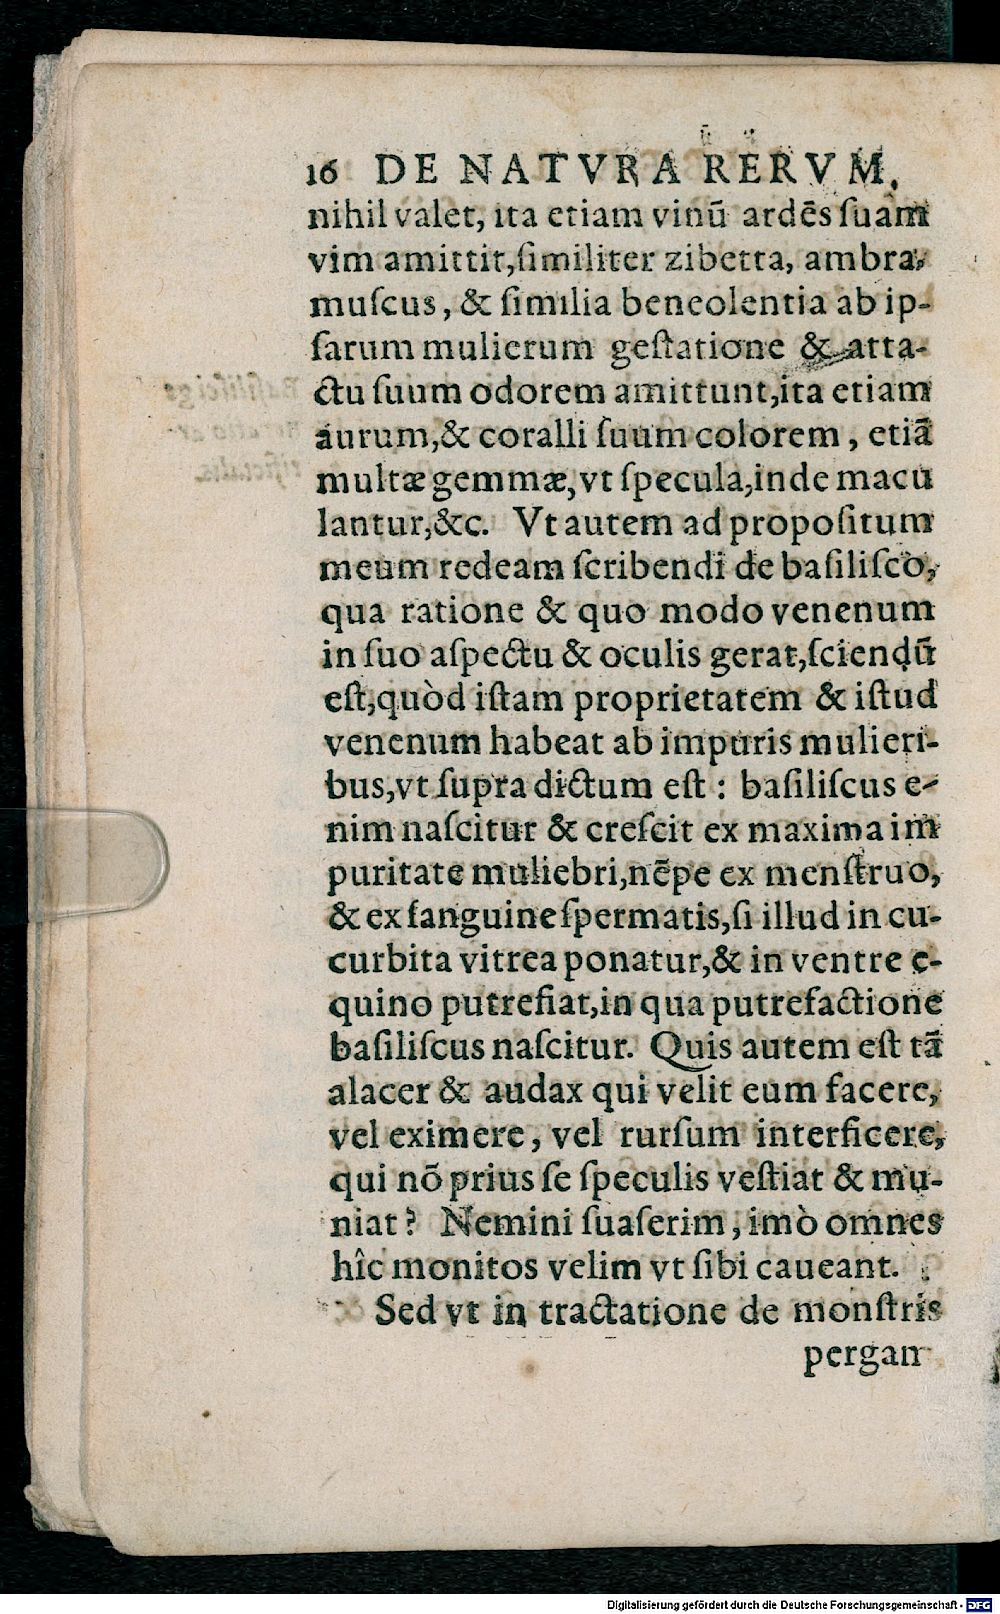 16 DE NATVRA RERVM.
nihil valet, ita etiam vinū ardēs ſuam
vim amittit, ſimiliter zibetta, ambra,
muſcus, & ſimilia beneolentia ab ip-
ſarum mulierum geſtatione & atta-
ctu ſuum odorem amittunt, ita etiam
aurum, & coralli ſuum colorem, etiā
multæ gemmæ, vt ſpecula, inde macu
lantur, &c. Vt autem ad propoſitum
meum redeam ſcribendi de baſiliſco,
qua ratione & quo modo venenum
in ſuo aſpectu & oculis gerat, ſciendū
eſt, quòd iſtam proprietatem & iſtud
venenum habeat ab impuris mulieri-
bus, vt ſupra dictum eſt: baſiliſcus e-
nim naſcitur & creſcit ex maxima im
puritate muliebri, nēpe ex menſtruo,
& ex ſanguine ſpermatis, ſi illud in cu-
curbita vitrea ponatur, & in ventre e-
quino putrefiat, in qua putrefactione
baſiliſcus naſcitur. Quis autem eſt tā
alacer & audax qui velit eum facere,
vel eximere, vel rurſum interficere,
qui nō prius ſe ſpeculis veſtiat & mu-
niat? Nemini ſuaſerim, imò omnes
hîc monitos velim vt ſibi caueant.
Sed vt in tractatione de monſtris
Digitalisierung gefördert durch die Deutsche Forschungsgemeinschaft - DFG